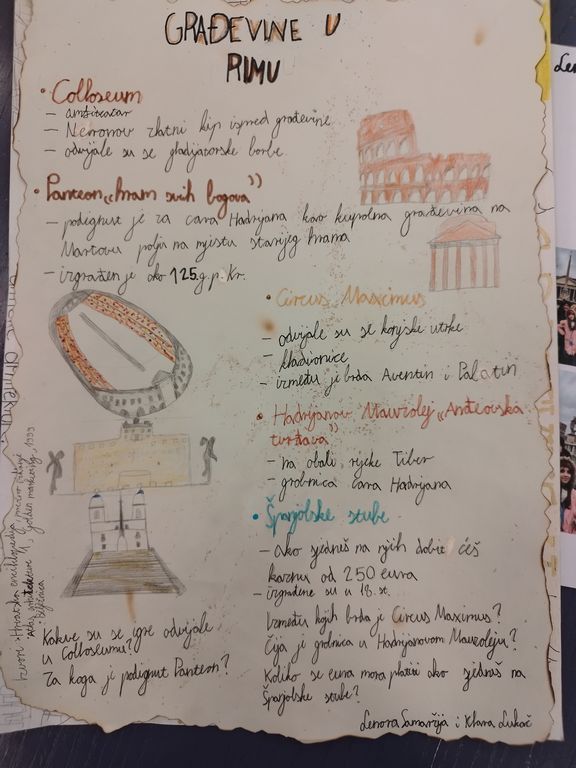 GRAĐEVINE U
RIMU
• Colloseum
- amfiteatar
- Neronov zlatni kip ispred građevine
- odvijale su se gladijatorske borbe
• Panteon „hram svih bogova"
- podignut je za cara Hadrijana kao kupolna građevina na
Martovu polju na mjestu starijeg hrama
- izgrađen je oko 125.g.p.Kr.
• Circus Maximus
- odvijale su se konjske utrke
- kladionice
- između je brda Aventin i Palatin
• Hadrijanov Mauzolej „Anđeoska
tvrđava"
- na obali rijeke Tiber
- grobnica cara Hadrijana
• Španjolske stube
- ako sjedneš na njih dobit ćeš
kaznu od 250 eura
- izgrađene su u 18. st.
Kakve su se igre odvijale
u Colloseumu?
Za koga je podignut Panteon?
Između kojih brda je Circus Maximus?
Čija je grobnica u Hadrijanovom Mauzoleju?
Koliko se eura mora platiti ako sjedneš na
Španjolske stube?
Lenora Samaržija i Klara Lukač
Izvori: Hrvatska enciklopedija
Golden marketing, 1999